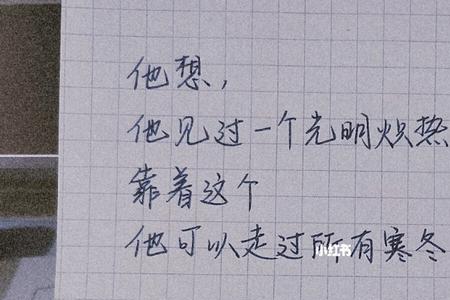 他想，
他见过一个光明炽热
靠着这个
他可以走过所有寒冬
小红书